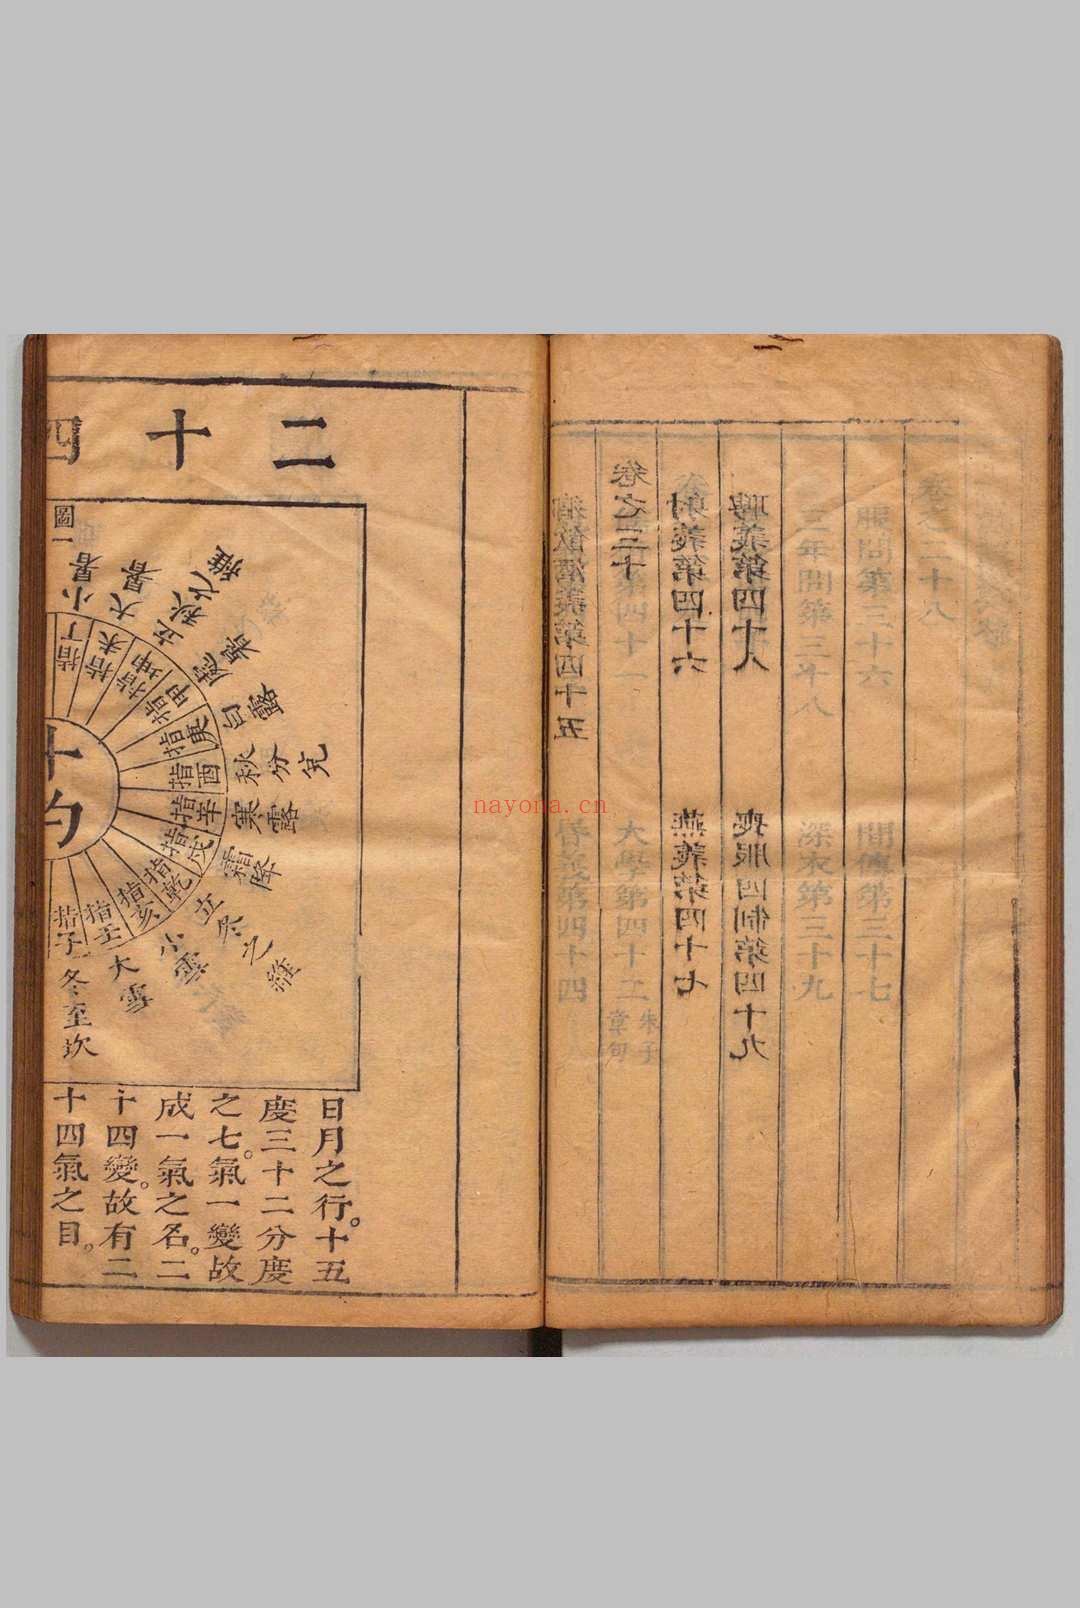 卷之二十八
服問第三十六
間傳第三十七
三年問第三十八
深衣第三十九
聘義第四十八
喪服四制第四十九
射義第四十六
燕義第四十七
卷之三十
第四十一
大學第四十二
朱子
章句
鄉飲酒義第四十五
昏義第四十四
nayona.cn
二十四
圖一
小暑
大暑
立秋之維
處暑
白露
秋分兌
寒露
霜降
立冬之維
小雪
大雪
冬至坎
指丁
指未
指坤
指申
指庚
指酉
指辛
指戌
指乾
指亥
指壬
指子
日月之行。十五
度三十二分度
之七。氣一變故
成一氣之名。二
十四變。故有二
十四氣之目。